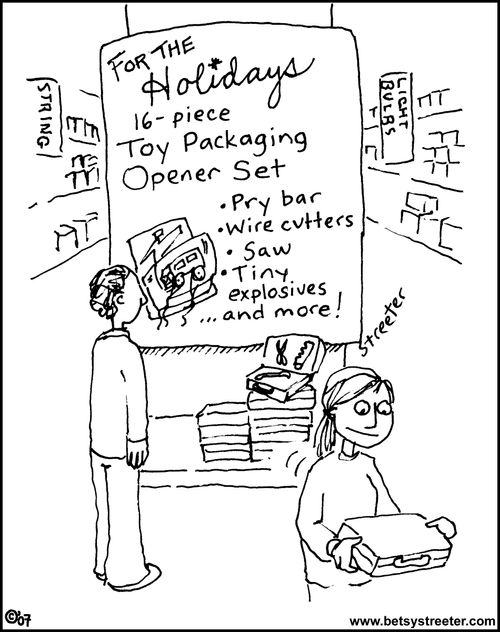 FOR THE
Holidays
16-piece
Toy Packaging
Opener Set
• Pry bar
• Wire cutters
• Saw
• Tiny
explosives
...and more!
STRING
LIGHT
BULBS
Streeter
©'07
www.betsystreeter.com